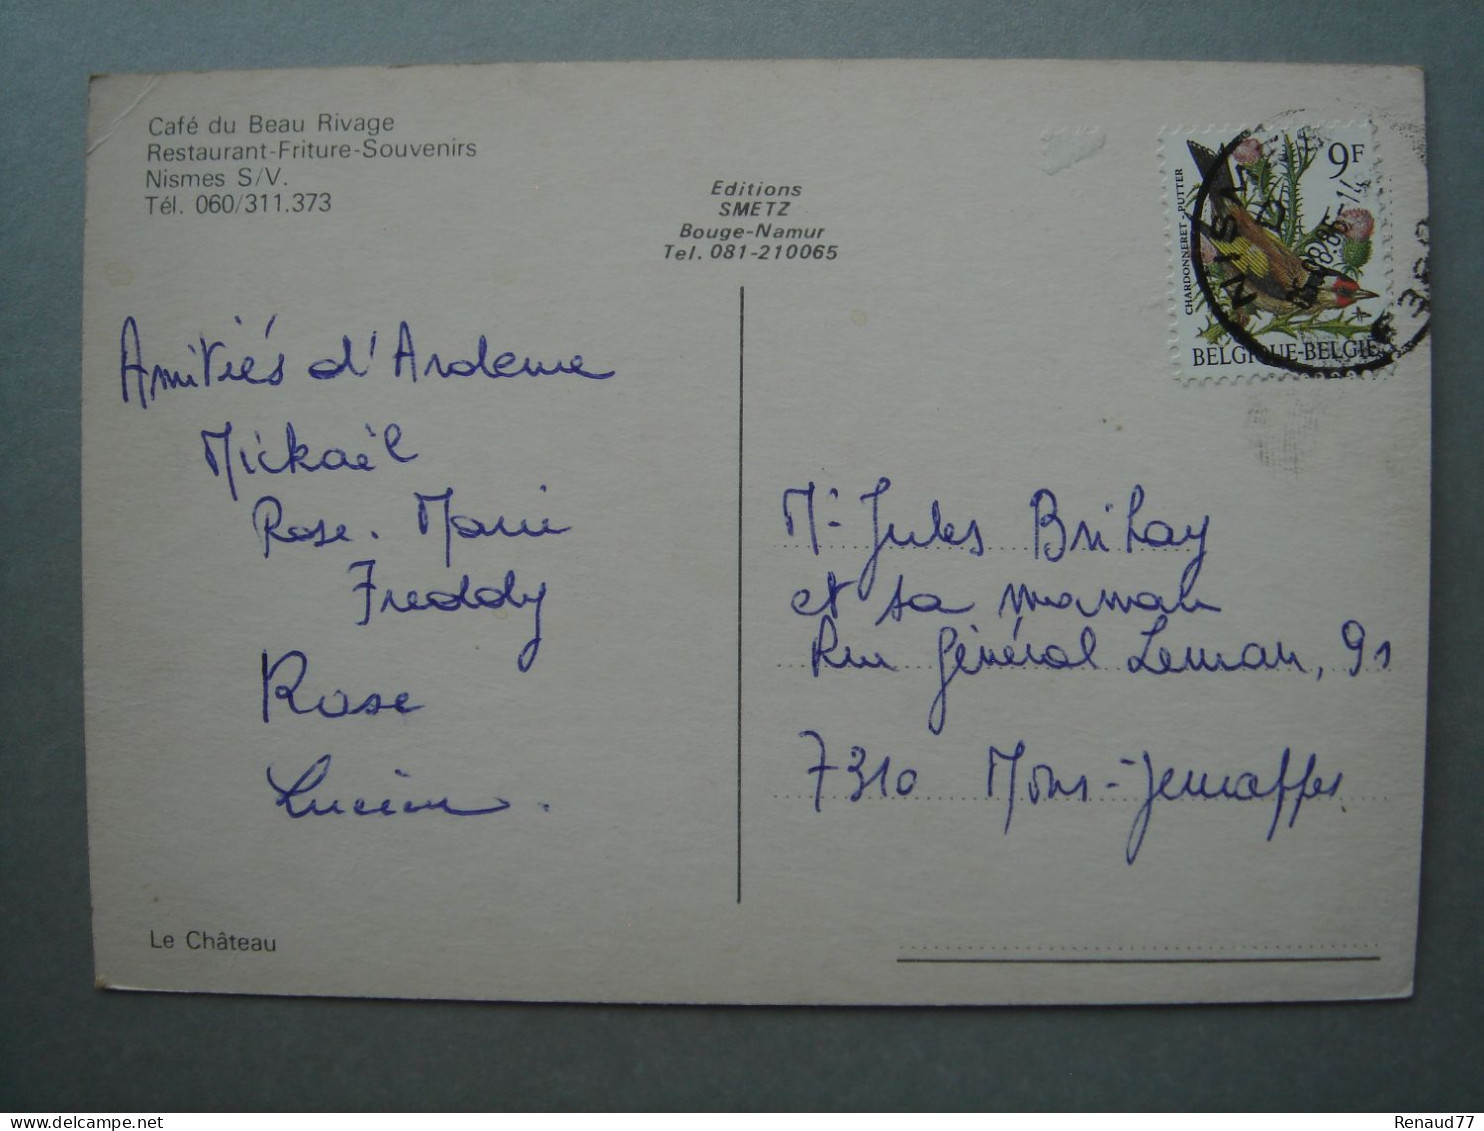 Café du Beau Rivage
Restaurant-Friture-Souvenirs
Nismes S/V.
Tél. 060/311.373
Editions
SMETZ
Bouge-Namur
Tel. 081-210065
9F
CHARDONNERET - PUTTER
BELGIQUE-BELGIE
NISMES
Amitiés d'Ardenne
Mickaël
Rose-Marie
Freddy
Rose
Lucien.
Mr Jules Brihay
et sa maman
Rue Général Leman, 91
7310 Mons-Jemappes
Le Château
delcampe.net
Renaud77